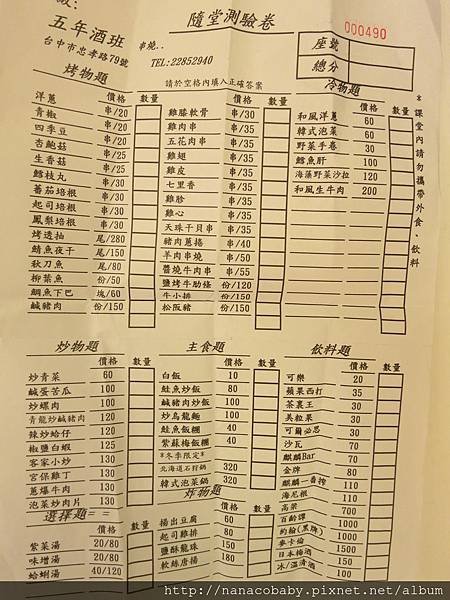 五年酒班
台中市忠孝路79號
串燒..
TEL:22852940
隨堂測驗卷
請於空格內填入正確答案
000490
座號
總分
*課堂內請勿攜帶外食、飲料
烤物題 價格 數量
洋蔥 串/20
青椒 串/20
四季豆 串/20
杏鮑菇 串/25
生香菇 串/25
鱈枝丸 串/30
蕃茄培根 串/30
起司培根 串/30
鳳梨培根 串/30
烤透抽 尾/280
鯖魚夜干 尾/150
秋刀魚 尾/80
柳葉魚 份/50
鯛魚下巴 塊/60
鹹豬肉 份/150
價格 數量
雞膝軟骨 串/30
雞肉串 串/35
五花肉串 串/35
雞翅 串/35
雞皮 串/35
七里香 串/35
雞胗 串/35
雞心 串/35
天珠干貝串 串/35
豬肉蔥捲 串/40
羊肉串燒 串/50
醬燒牛肉串 串/55
鹽烤牛肋條 份/120
牛小排 份/150
松阪豬 份/150
冷物題 價格 數量
和風洋蔥 60
韓式泡菜 60
野菜手卷 30
鱈魚肝 100
海藻野菜沙拉 120
和風生牛肉 200
炒物題
價格 數量
炒青菜 60
鹹蛋苦瓜 100
炒螺肉 100
青龍炒鹹豬肉 120
辣炒蛤仔 120
椒鹽白蝦 125
客家小炒 130
宮保雞丁 130
蔥爆牛肉 130
泡菜炒肉片 130
選擇題= =
價格 數量
紫菜湯 20/80
味增湯 20/80
蛤蜊湯 40/120
主食題
價格 數量
白飯 10
鮭魚炒飯 80
鹹豬肉炒飯 80
炒烏龍麵 100
鮭魚飯糰 40
紫蘇梅飯糰 40
*冬季限定*
北海道石狩鍋 320
韓式泡菜鍋 320
炸物題
價格 數量
揚出豆腐 60
起司雞排 80
鹽酥龍珠 150
軟絲唐揚 180
飲料題
價格 數量
可樂 20
蘋果西打 35
茶裏王 30
美粒果 30
可爾必思 30
沙瓦 70
麒麟Bar 70
金牌 80
麒麟一番搾 110
海尼根 110
高粱 700
百齡譚 1000
約翰(黑牌) 1000
麥卡倫 1500
日本梅酒 150
冰/溫清酒 150
http://nanacobaby.pixnet.net/album